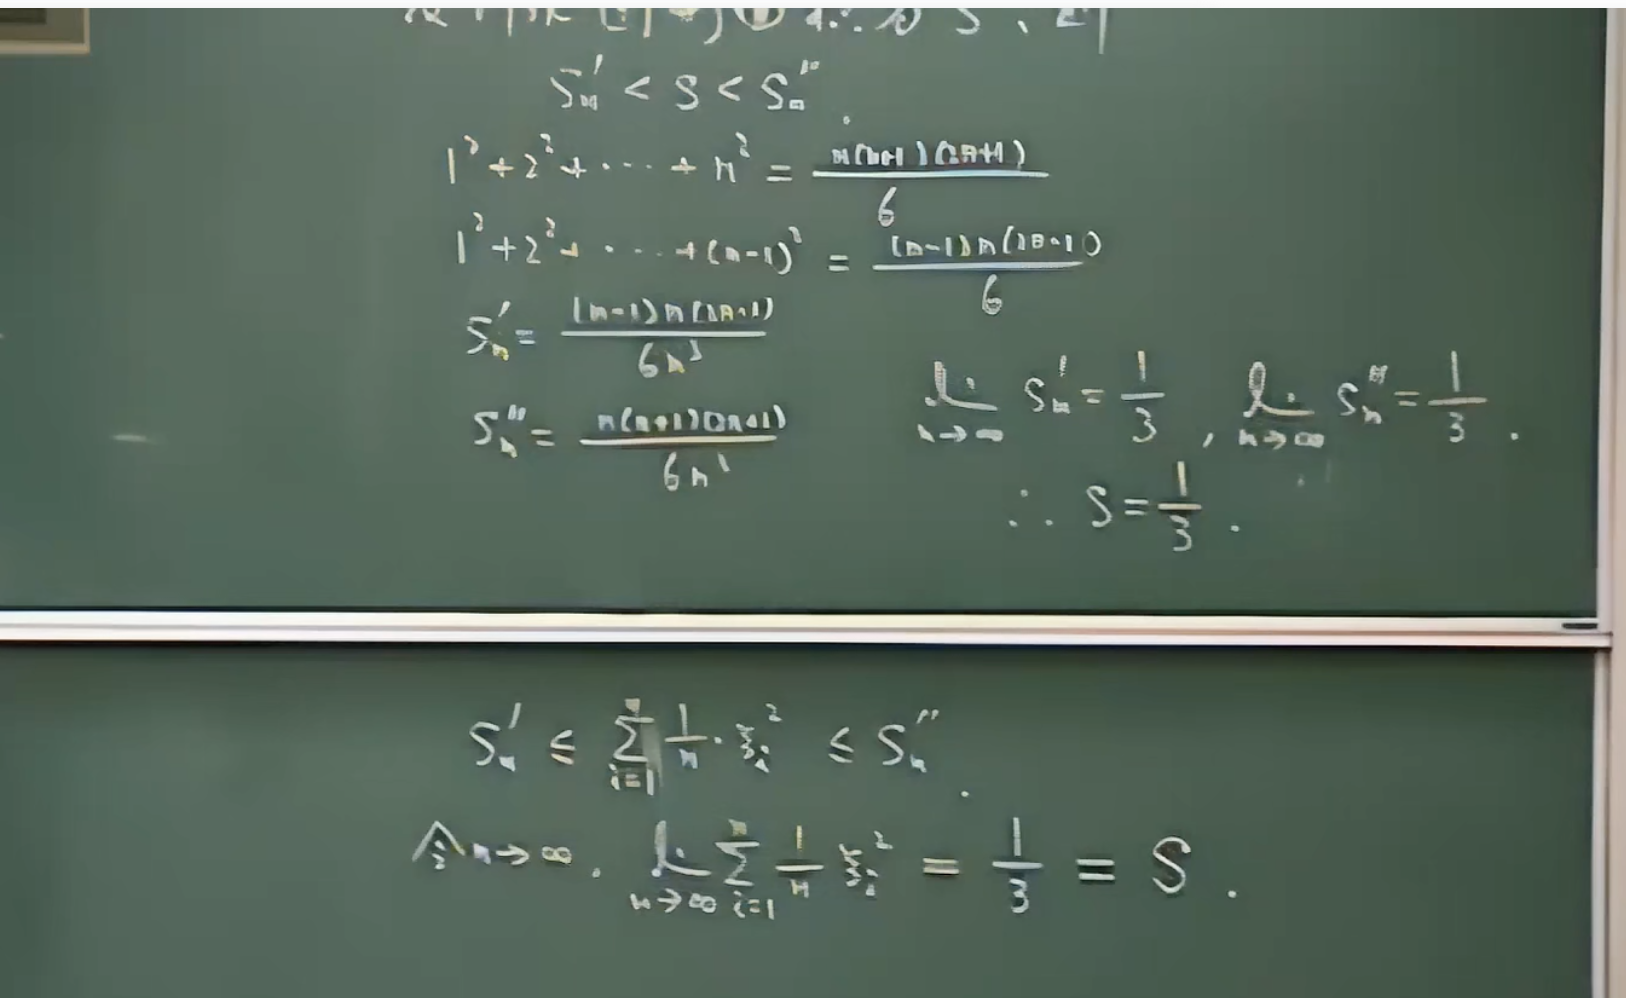 S'ₙ < S < S''ₙ.
1² + 2² + ⋯ + n² = n(n+1)(2n+1)/6
1² + 2² + ⋯ + (n-1)² = (n-1)n(2n-1)/6
S'ₙ = (n-1)n(2n-1)/6n³
S''ₙ = n(n+1)(2n+1)/6n³
lim_{n→∞} S'ₙ = 1/3, lim_{n→∞} S''ₙ = 1/3.
∴ S = 1/3.
S'ₙ ≤ ∑_{i=1}^{n} 1/n · ξᵢ² ≤ S''ₙ.
令 n→∞. lim_{n→∞} ∑_{i=1}^{n} 1/n ξᵢ² = 1/3 = S.